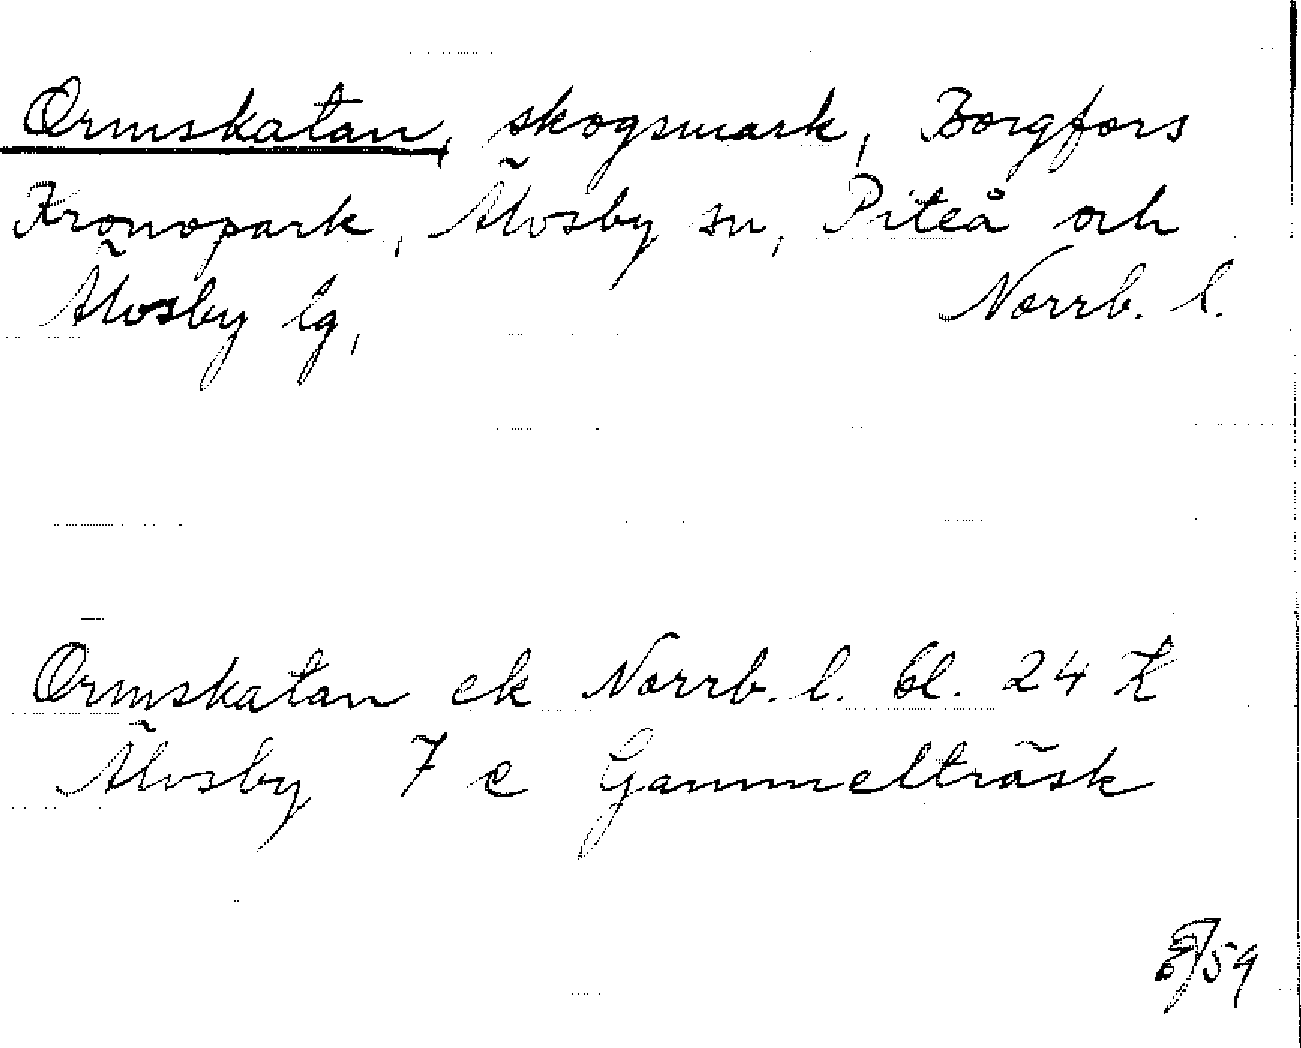 Ormskatan, skogsmark, Borgfors
Kronopark, Älvsby sn, Piteå och
Älvsby lg, Norrb. l.
Ormskatan ek Norrb. l. bl. 24 K
Älvsby 7 e Gammelträsk
59